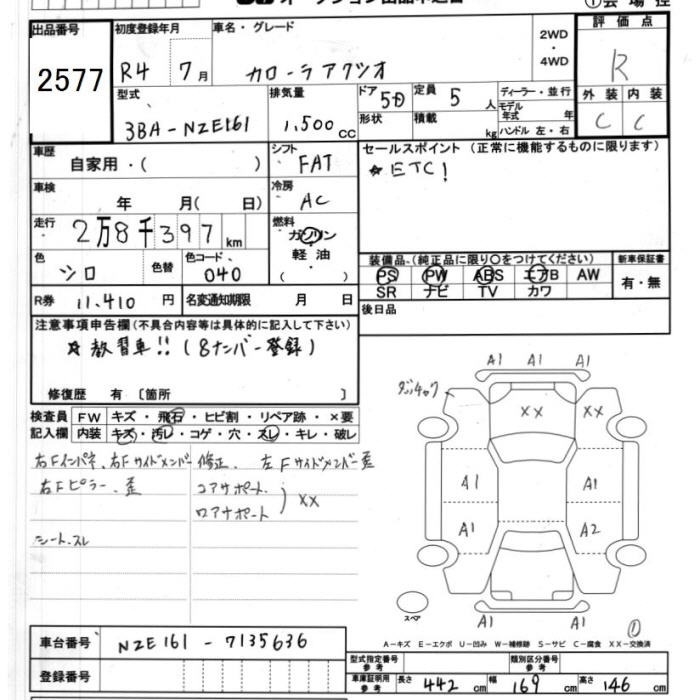 出品番号 初度登録年月 車名・グレード 2WD・4WD 評価点
2577 R4 7月 カローラアクシオ R
型式 排気量 ドア 5D 定員 5人 ディーラー・並行 外装 内装
3BA-NZE161 1,500cc 形状 積載 kg モデル年式 年 C C
ハンドル 左・右
車歴 シフト セールスポイント (正常に機能するものに限ります)
自家用・( ) FAT ☆ETC!
車検 冷房
年 月( 日) AC
走行 燃料
2万8千397km ガソリン
軽油・
( )
色 色替 色コード
シロ 040
装備品 (純正品に限り〇をつけてください) 新車保証書
PS PW ABS エアB AW 有・無
SR ナビ TV カワ
R券 11,410円 名変通知期限 月 日 後日品
注意事項申告欄(不具合内容等は具体的に記入して下さい)
☆教習車!! (8ナンバー登録)
修復歴 有 〔箇所 〕
検査員 FW キズ・飛石・ヒビ割・リペア跡・×要
記入欄 内装 キズ・汚レ・コゲ・穴・スレ・キレ・破レ
右Fインパネ、右Fサイドメンバー修正、左Fサイドメンバー歪
右Fピラー、歪 コアサポート、
ロアサポート XX
シート、スレ
A1 A1 A1
XX XX
A1 A1
A1 A2
A1 A1
スペア
①
A-キズ E-エクボ U-凹み W-補修跡 S-サビ C-腐食 XX-交換済
車台番号 NZE161-7135636
登録番号
型式指定番号 参考 類別区分番号 参考
車庫証明用 参考 長さ 442cm 幅 169cm 高さ 146cm